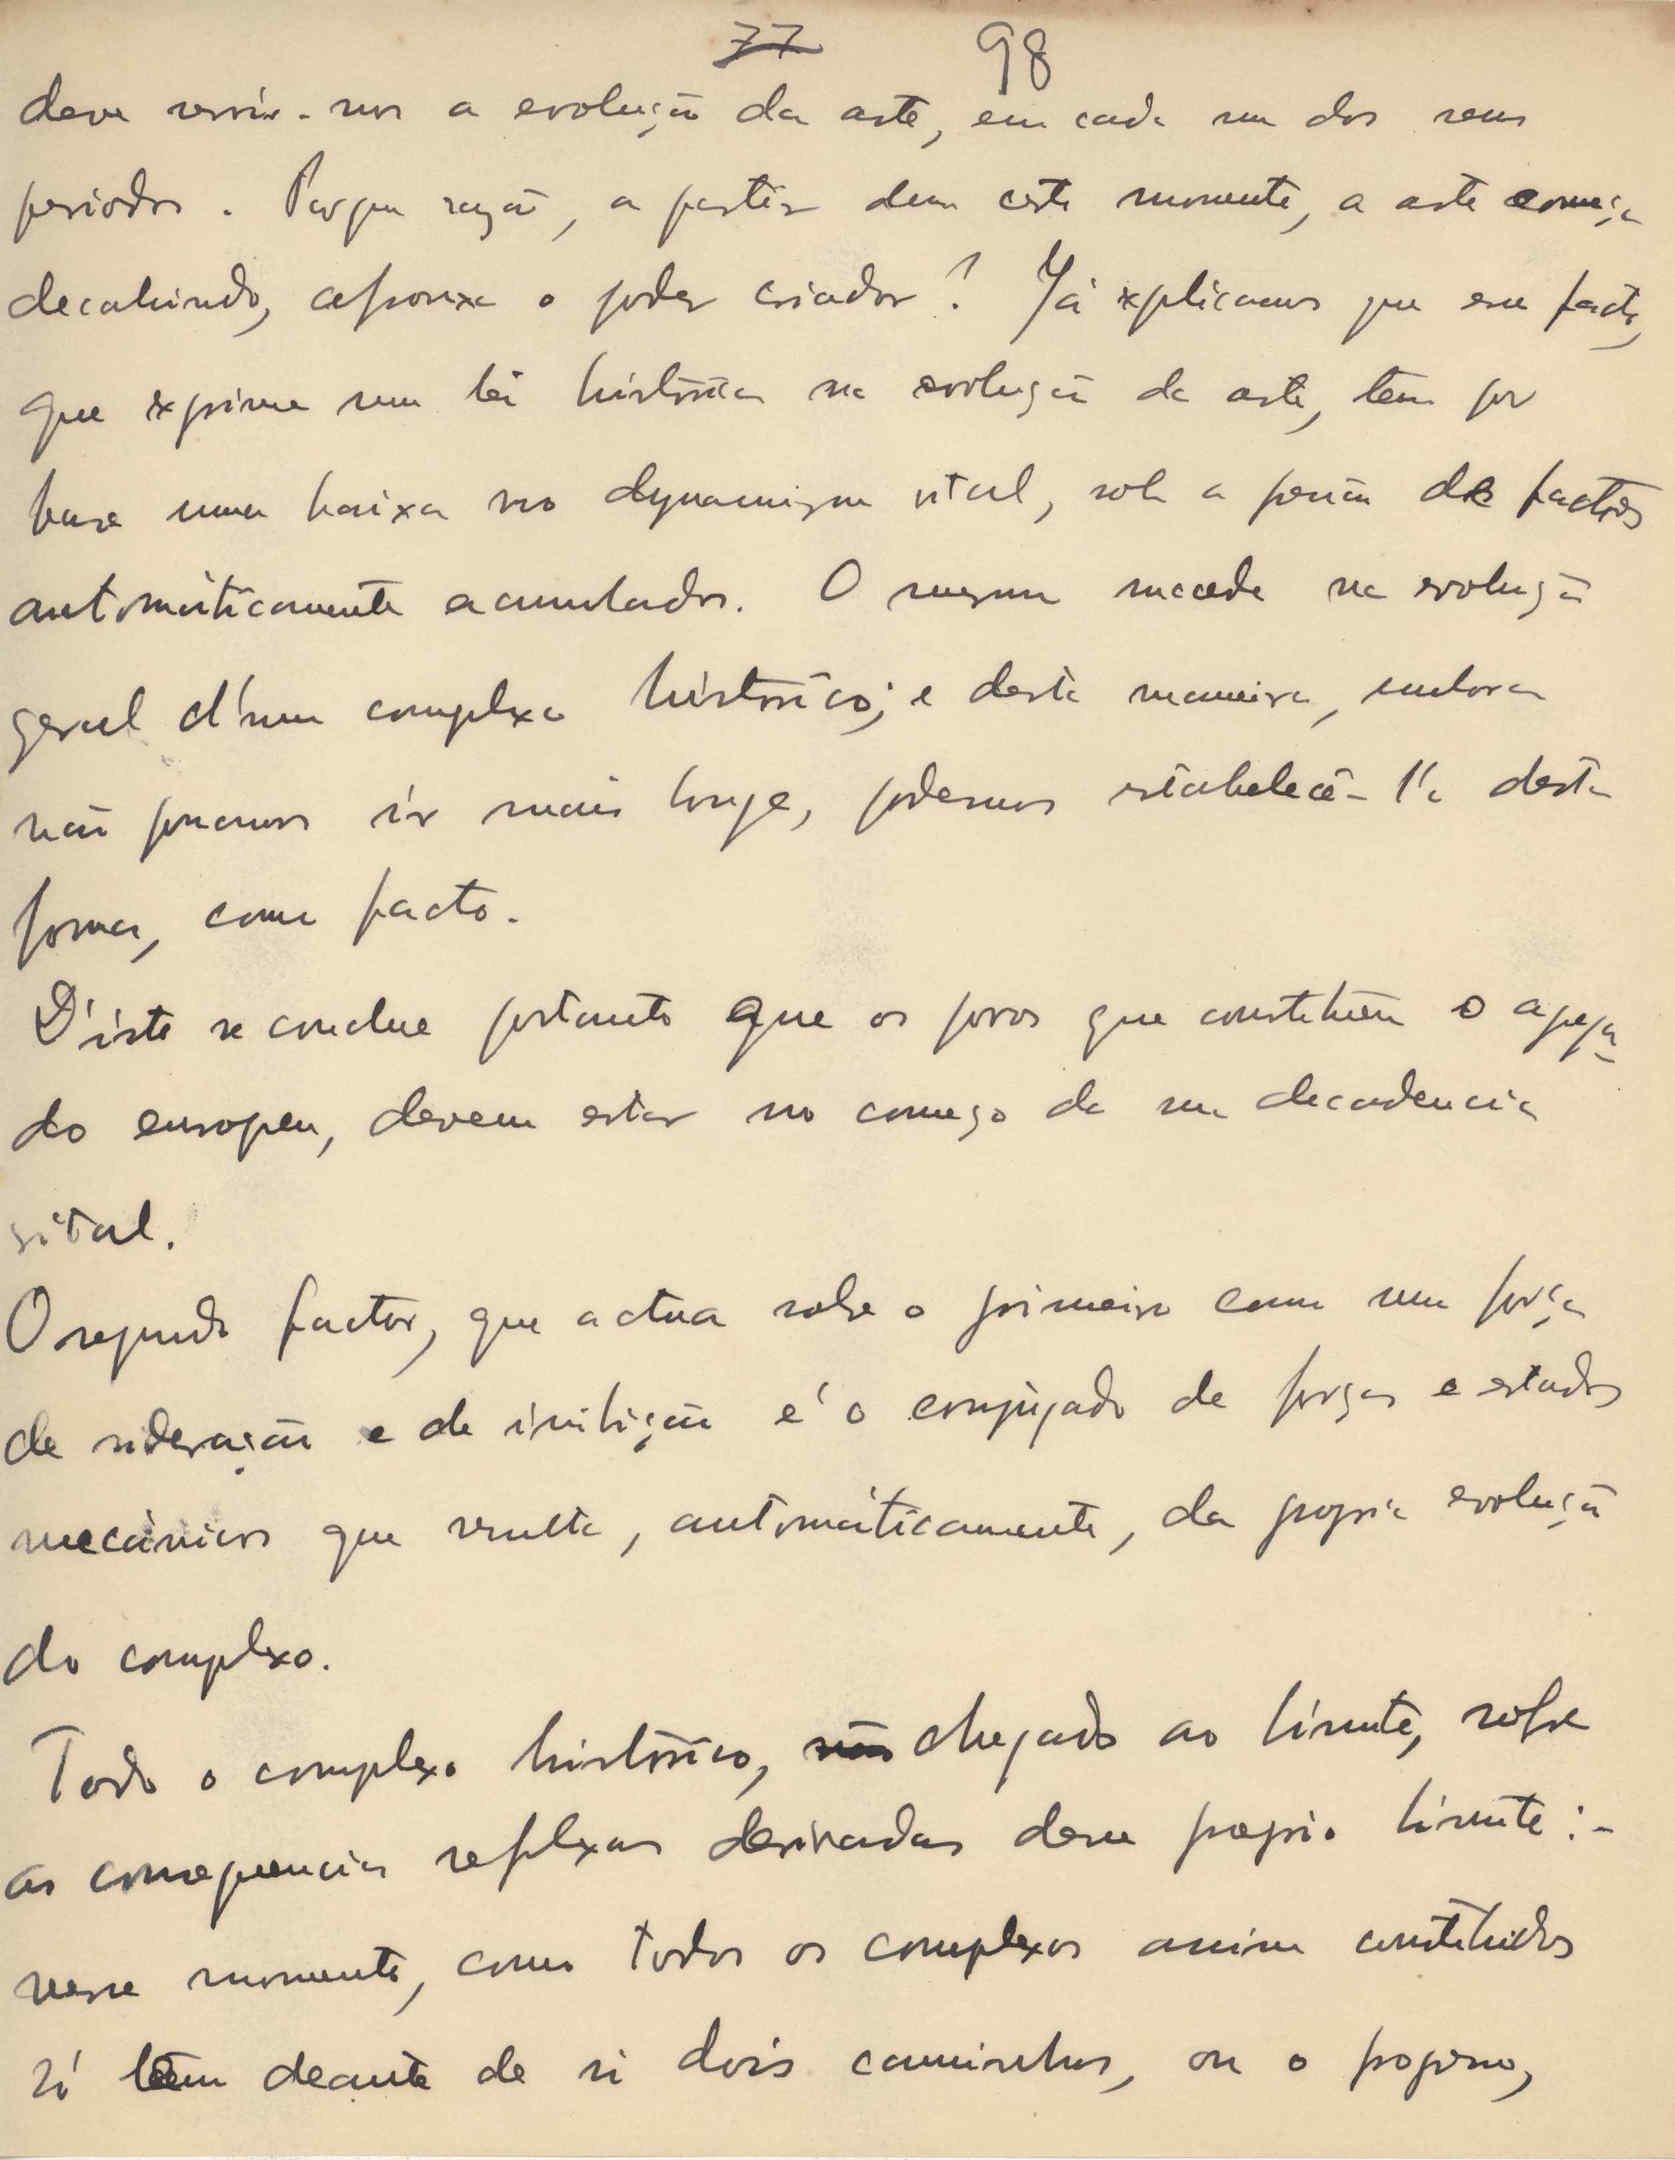 77 98
deve servir-nos a evolução da arte, em cada um dos seus
periodos. Porque razão, a partir dum certo momento, a arte começa
decahindo, afrouxa o poder criador? Já explicamos que esse facto,
que exprime uma lei histórica na evolução da arte, tem por
base uma baixa no dynamismo vital, sob a forma de factores
automáticamente acumulados. O mesmo succede na evolução
geral d'um complexo histórico; e desta maneira, embora
não possamos ir mais longe, podemos estabelecê-l'a desta
forma, como facto.
D'isto se conclue portanto que os povos que constituem o apoga-
do europeu, devem estar no começo da sua decadencia
vital.
O segundo factor, que actua sobre o primeiro como uma força
de sideração e de inibição é o conjugado de forças e estados
mecánicos que resulta, automáticamente, da propria evolução
do complexo.
Todo o complexo histórico, não chegado ao limite, sofre
as consequencias reflexas derivadas desse proprio limite:-
nesse momento, como todos os complexos assim constituidos
só têm deante de si dois caminhos, ou o progresso,